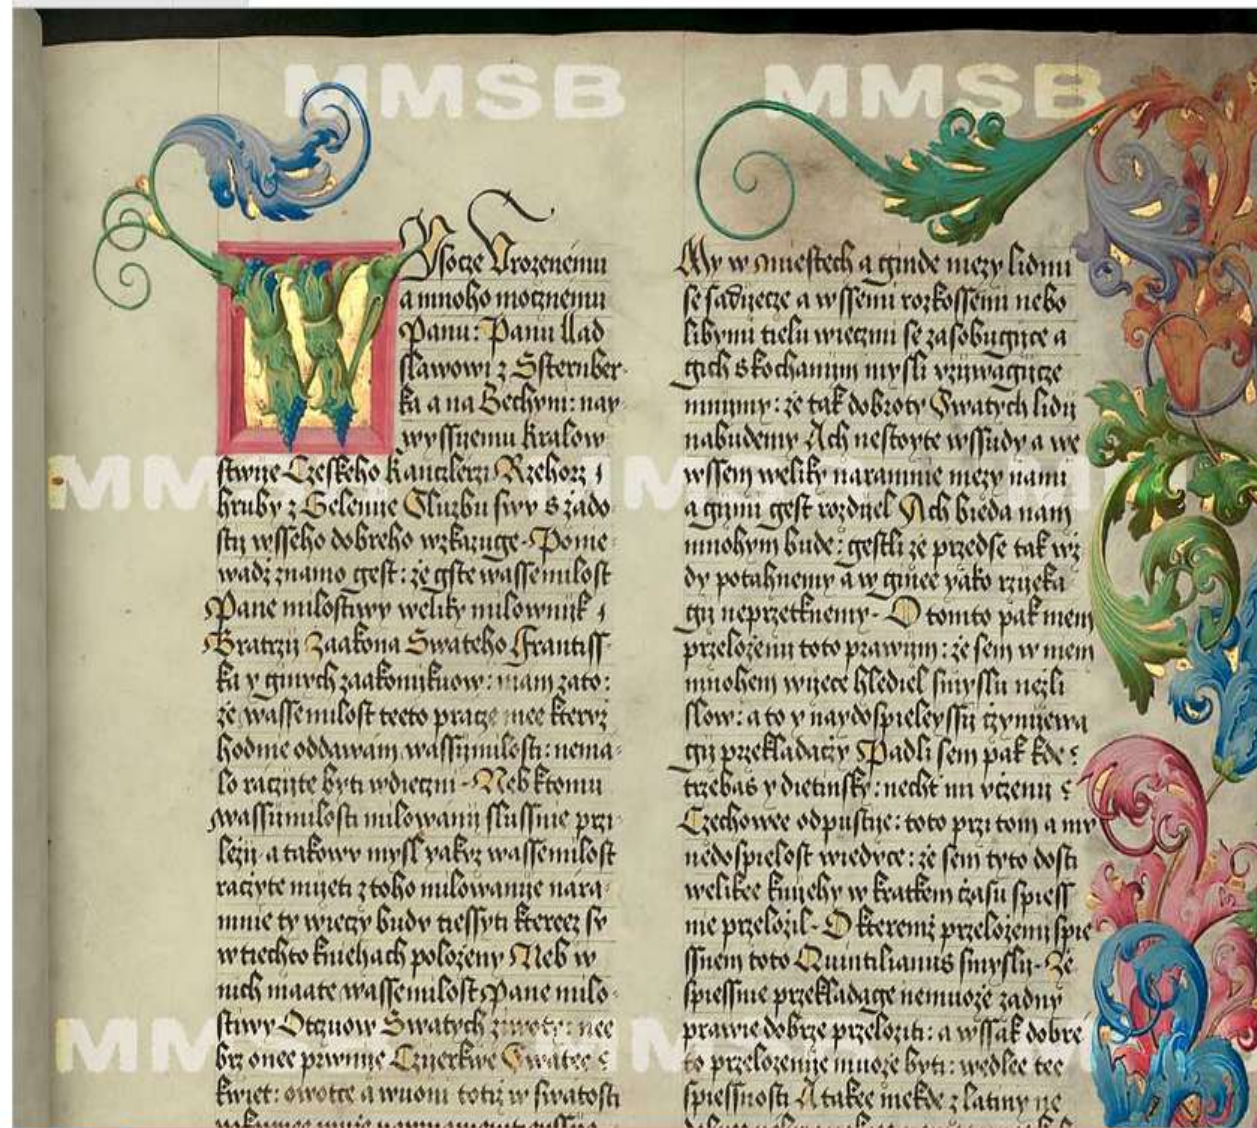 MMSB MMSB
Wysocze Urozenemu
a mnoho mocznemu
Panu: Panu Lad
slawowi z Ssternber
ka a na Bechyni: nay
wyssijemu kralow
stwije Czeskeho kanczlerzi Rzehorz
hruby z Gelenie Sluzbu swy s zado
stij wsseho dobreho wzkazuge. Ponie
wadz znamo gest: ze gste wasse milost
Pane milostiwy weliky milownijk
Bratrzij Zaakona Swateho Frantiss
ka y ginych zaakonikuow: mam zato:
ze wasse milost teeto pracze mee kteryz
hodnie oddawam wassij milosti: nema
lo raczite byti wdieczni. Neb ktomu
wassij milosti milowanij slussnie przi
lezij a takowy mysl yakyz wasse milost
raczyte mijeti z toho milowanije nara
mnie ty wieczy budu tiessyti kterecz sy
w tiechto kniehach polozeny Neb w
nich maate wasse milost Pane milo
stiwy Otczuow Swatych zywoty: nee
brz onee prwnije Czijerkwe Swatee
kwiet: owotce a wuoni totiz w swatosti
My w miestech a ginde mezy lidmi
se sadijecze a wssemi rozkossemi nebo
libymi tielu wieczmi se zasobugijce a
gich s kochanijm mysli vzijwagijcze
mnijmy: ze tak dobroty Swatych lidij
nabudemy Ach nestoyte wssudy a we
wssem weliky naramnie mezy nami
a gijmi gest rozdijel Ach bieda nam
mnohym bude: gestli ze przedse tak wz
dy potahnemy a w ginee yako rzijeka
gij neprzetkнemy. O tomto pak mem
przelozenij toto prawijm: ze sem w niem
mnohem wijece hlediel smyslu nezli
slow: a to y naydospieleyssij czynijewa
gij przekladaczy Padli sem pak kde
trzebas y dietinsky: necht mi vczenij
Czechowee odpustije: toto przi tom a my
nedospielost wiedyce: ze sem tyto dosti
welikee kniehy w kratkem czasu spiess
nie przelozil. O kteremz przelozenij spie
ssnem toto Quintilianus smyslij. Ze
spiessnie przekladage nemuoze zadny
prawie dobrze przeloziti: a wssak dobre
to przelozenije muoze byti: wedlee tee
spiessnosti A takee niekde z latiny ne